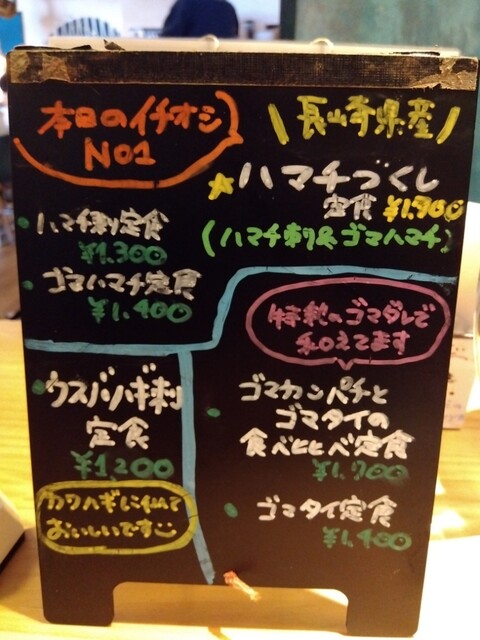 本日のイチオシ
NO1
長崎県産
ハマチづくし
定食 ¥1,900
(ハマチ刺&ゴマハマチ)
ハマチ刺定食
¥1,300
ゴマハマチ定食
¥1,400
特製のゴマダレで
和えてます
ウスバハギ刺
定食
¥1,200
カワハギに似て
おいしいです
ゴマカンパチと
ゴマタイの
食べヒヒべ定食
¥1,700
ゴマタイ定食
¥1,400